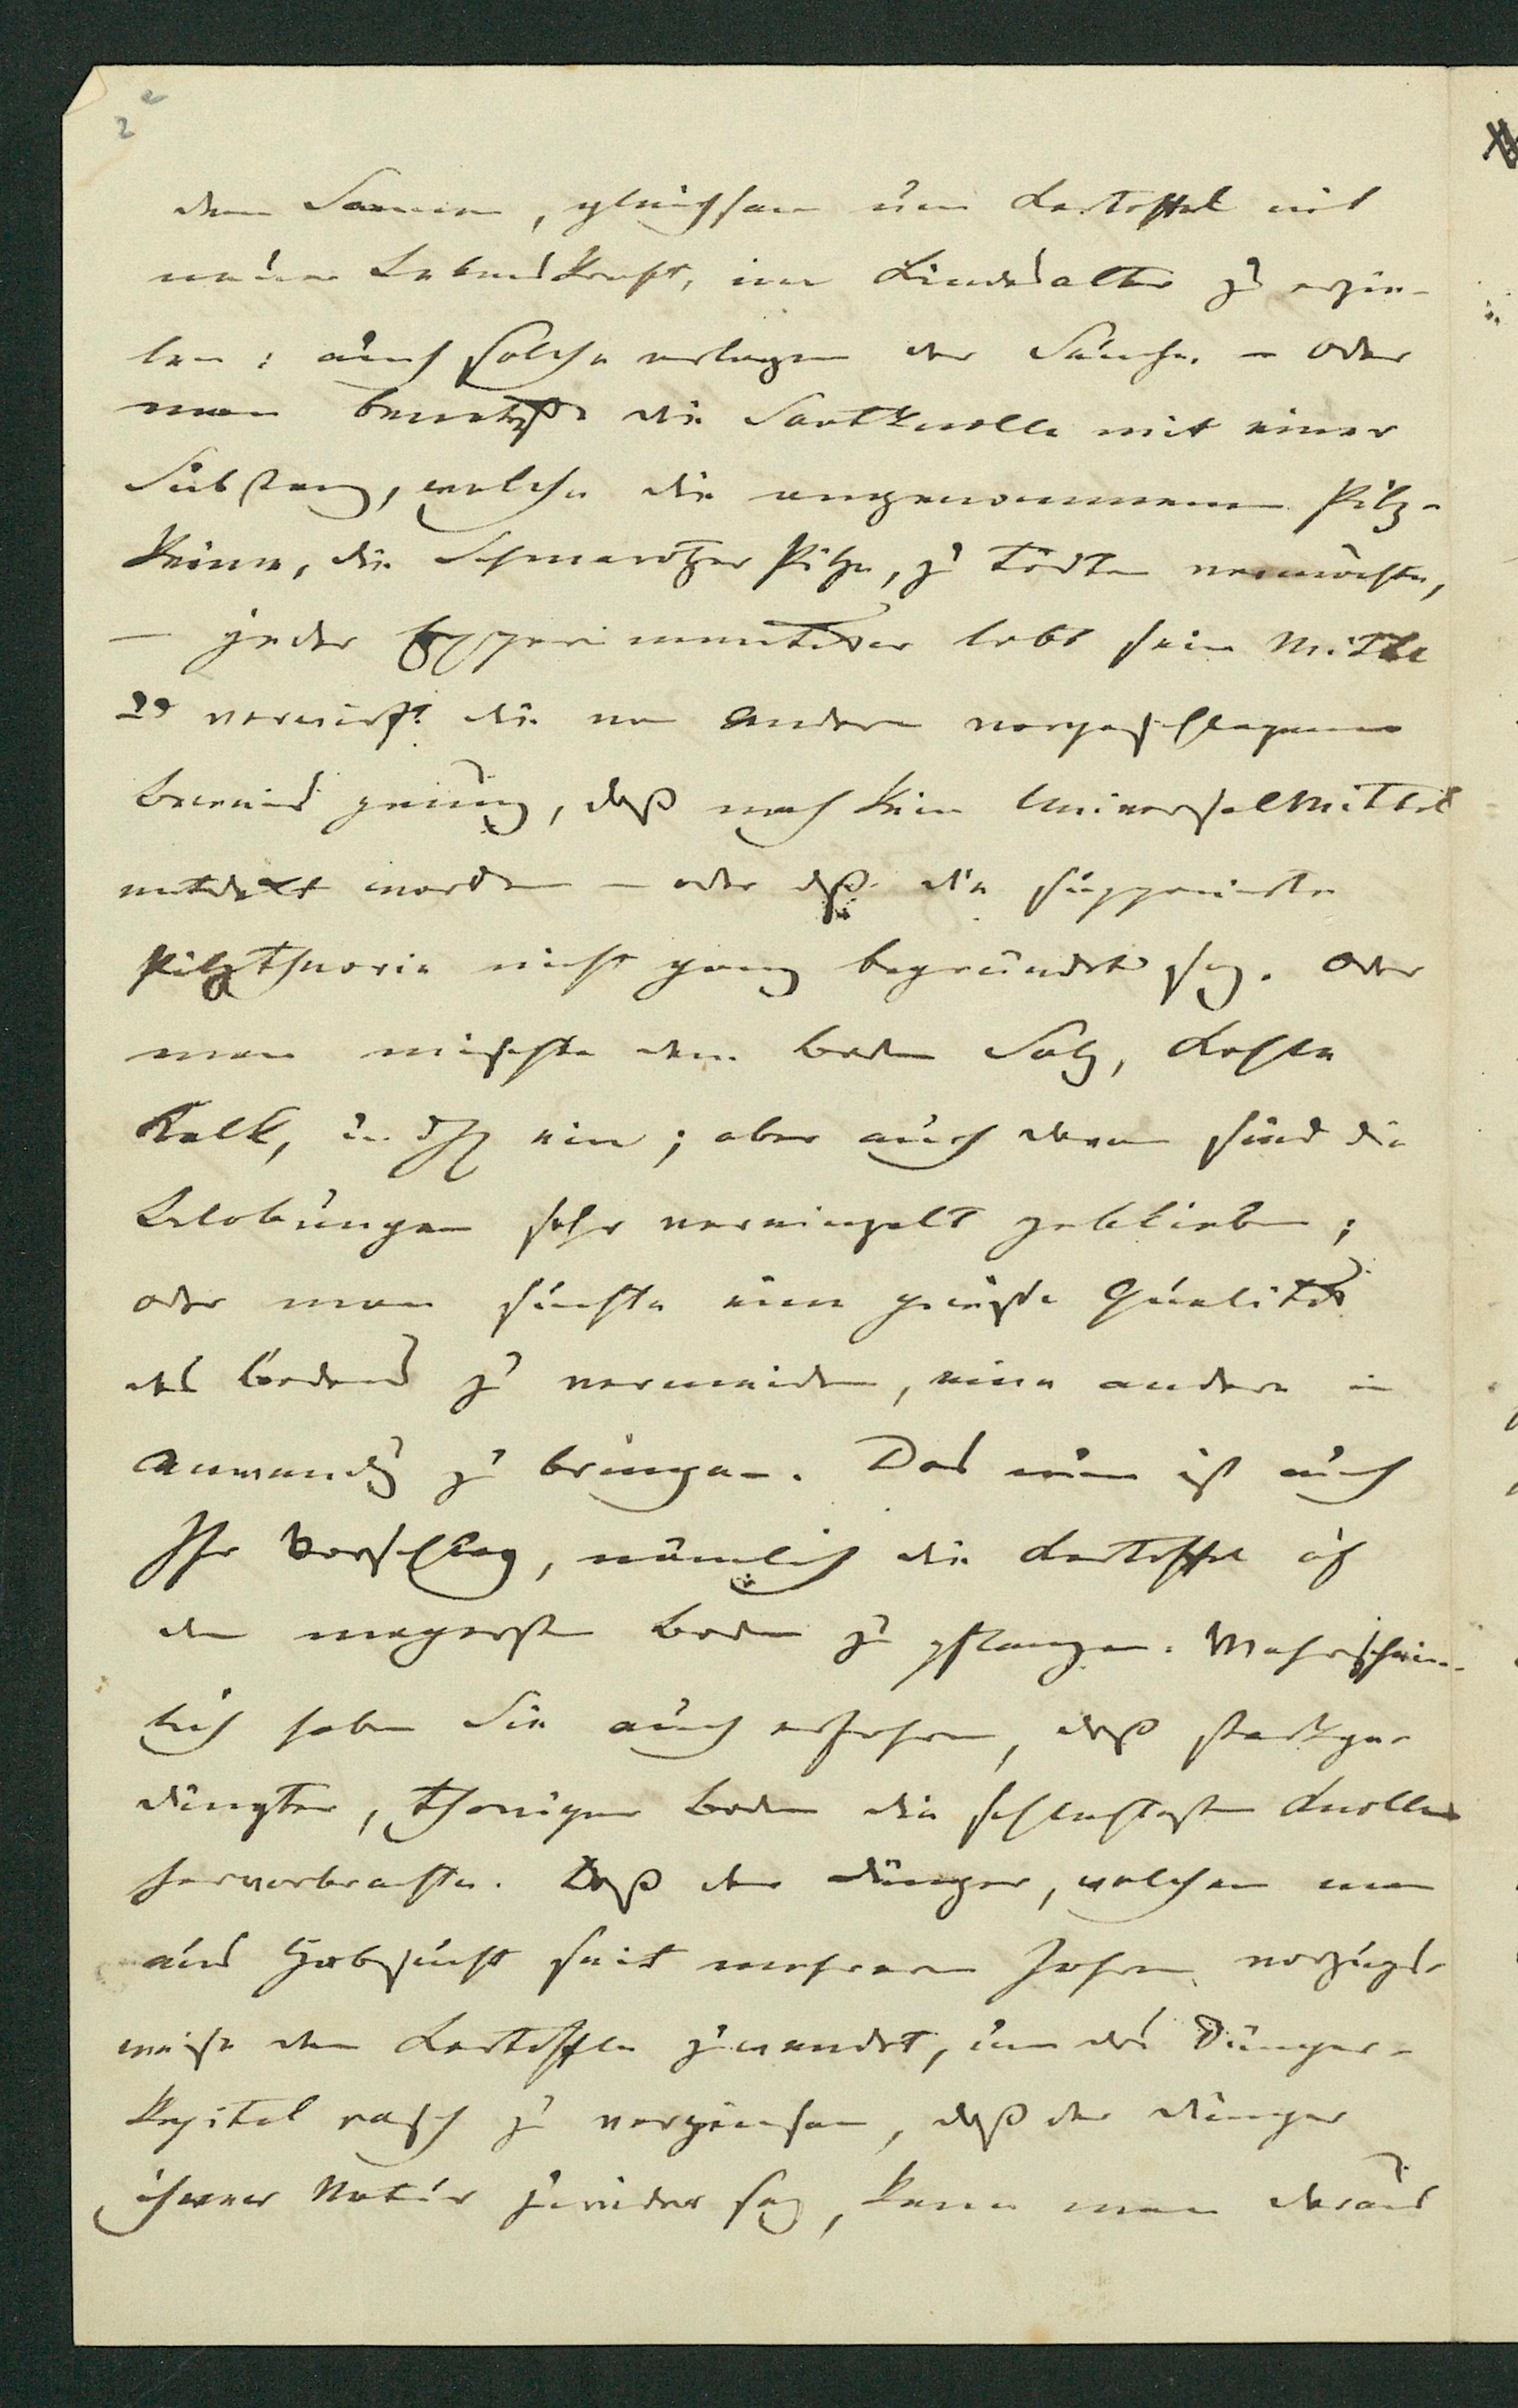 2
dem Samen, gleichsam um Kartoffel mit
neuer Lebenskraft, im Kindesalter zu erzie-
len: auch solche erlagen der Seuche. – Oder
man benetzte die Saatknolle mit einer
Substanz, welche die angenommenen Pilz-
keime, die Schmarotzer Pilze, zu tödten vermöchte,
– jeder Experimentator lobt sein Mittel
und verwirft die von Andern vorgeschlagenen
Beweis genug, daß noch kein Universalmittel
entdekt worden – oder daß die supponirte
Pilztheorie nicht ganz begründet sey. Oder
man mischte dem Boden Salz, Kohle
Kalk, u. dgl ein; aber auch deren sind die
Belobungen sehr vereinzelt geblieben;
oder man suchte eine gewisse Qualität
des Bodens zu vermeiden, eine andere in
Anwendg zu bringen. Das nun ist auch
Ihr Vorschlag, nämlich die Kartoffel auf
den magersten Boden zu pflanzen. Wahrschein-
lich haben Sie auch erfahren, daß starkge-
düngter, thoniger Boden die schlechtesten Knollen
hervorbrachte. Daß der Dünger, welchen man
aus Habsucht seit mehreren Jahren vorzugs-
weise den Kartoffeln zuwendet, um das Dünger-
kapital rasch zu verzinsen, daß der Dünger
ihrer Natur zuwider sey, kann man daraus